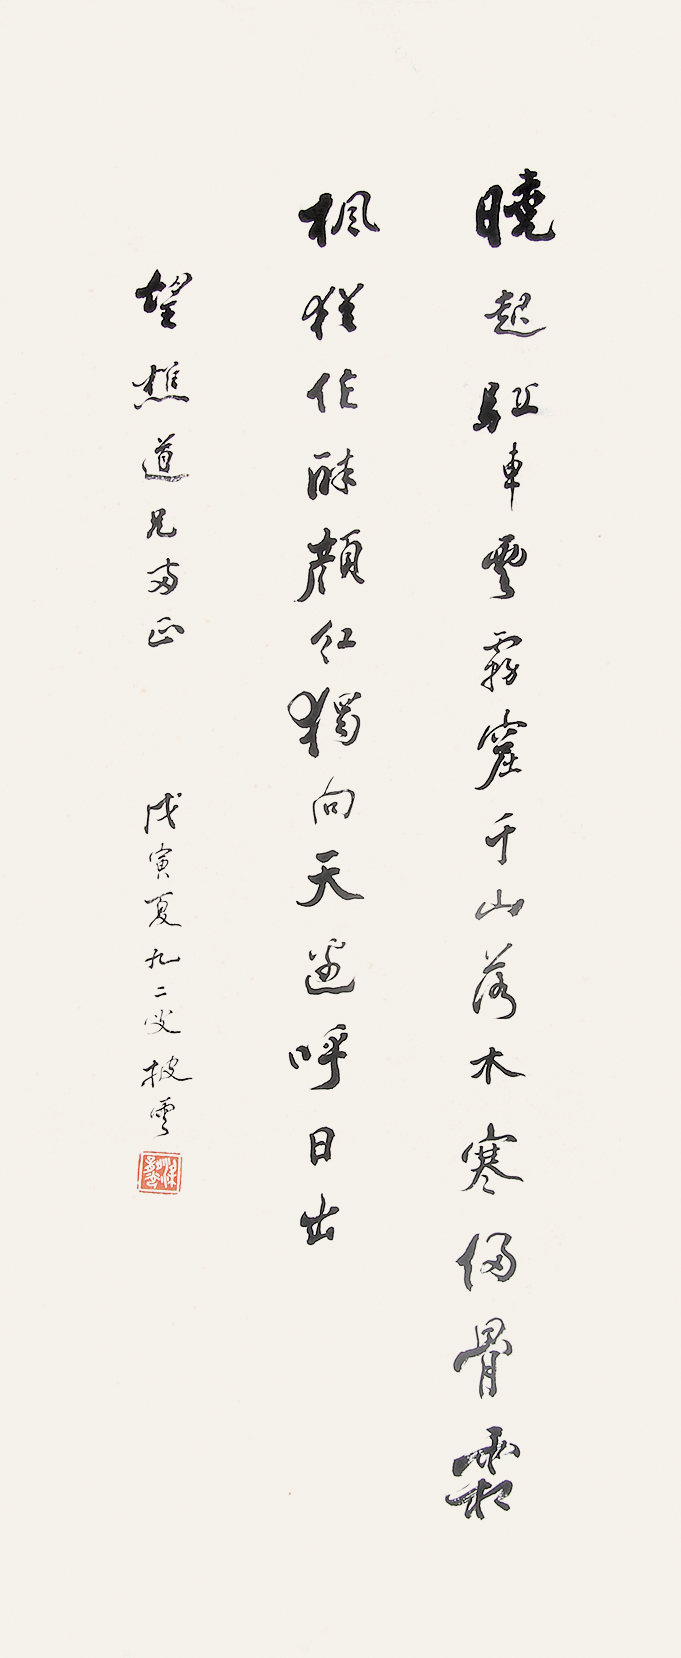 曉起驅車雲霧窟千山落木寒侵骨霜
楓猶作醉顏紅獨向天邊呼日出
望樵道兄兩正
戊寅夏九二叟披雲